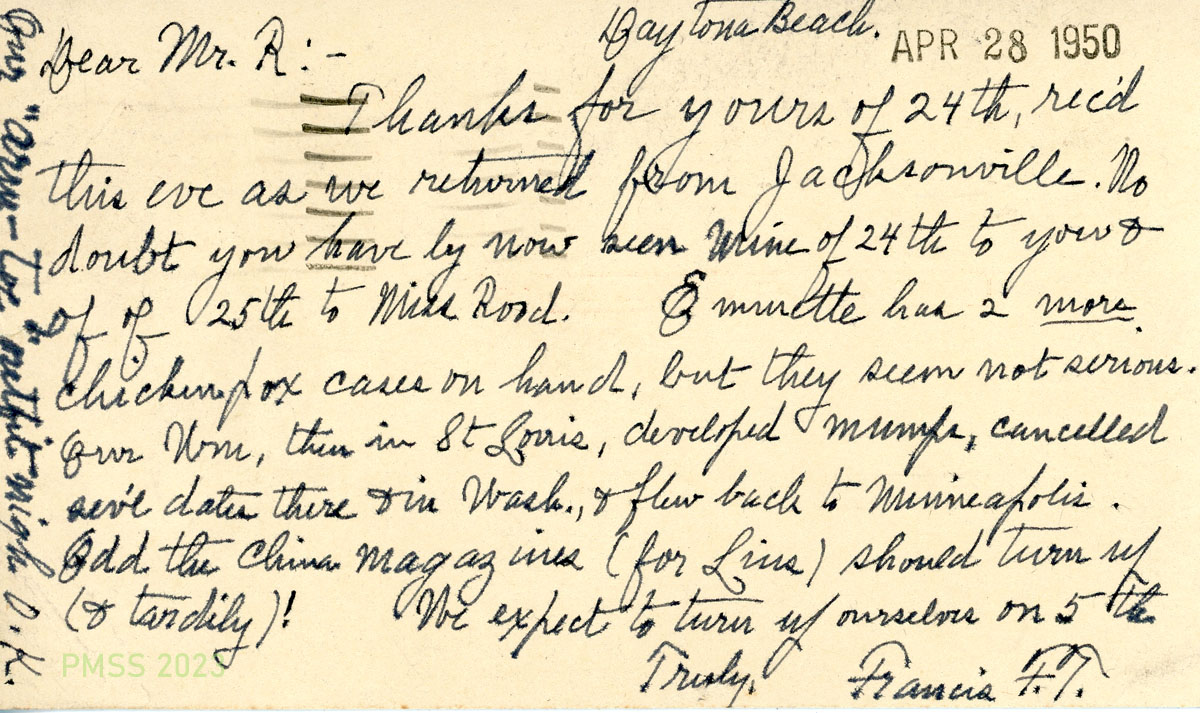 Daytona Beach.
APR 28 1950
Dear Mr. R:-
Thanks for yours of 24th, rec'd
this eve as we returned from Jacksonville. No
doubt you have by now seen mine of 24th to you &
of 25th to Miss Rood. Emmette has 2 more
chickenpox cases on hand, but they seem not serious.
Our Wm, then in St Louis, developed mumps, cancelled
dates there & in Wash., & flew back to Minneapolis.
Odd the China magazines (for Lins) should turn up
(& tardily)! We expect to turn up ourselves on 5th
Truly, Francis F.T.
Our "arm-toe" nigh O.K.
PMSS 2023